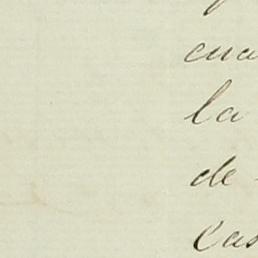 cua
la
de
cas